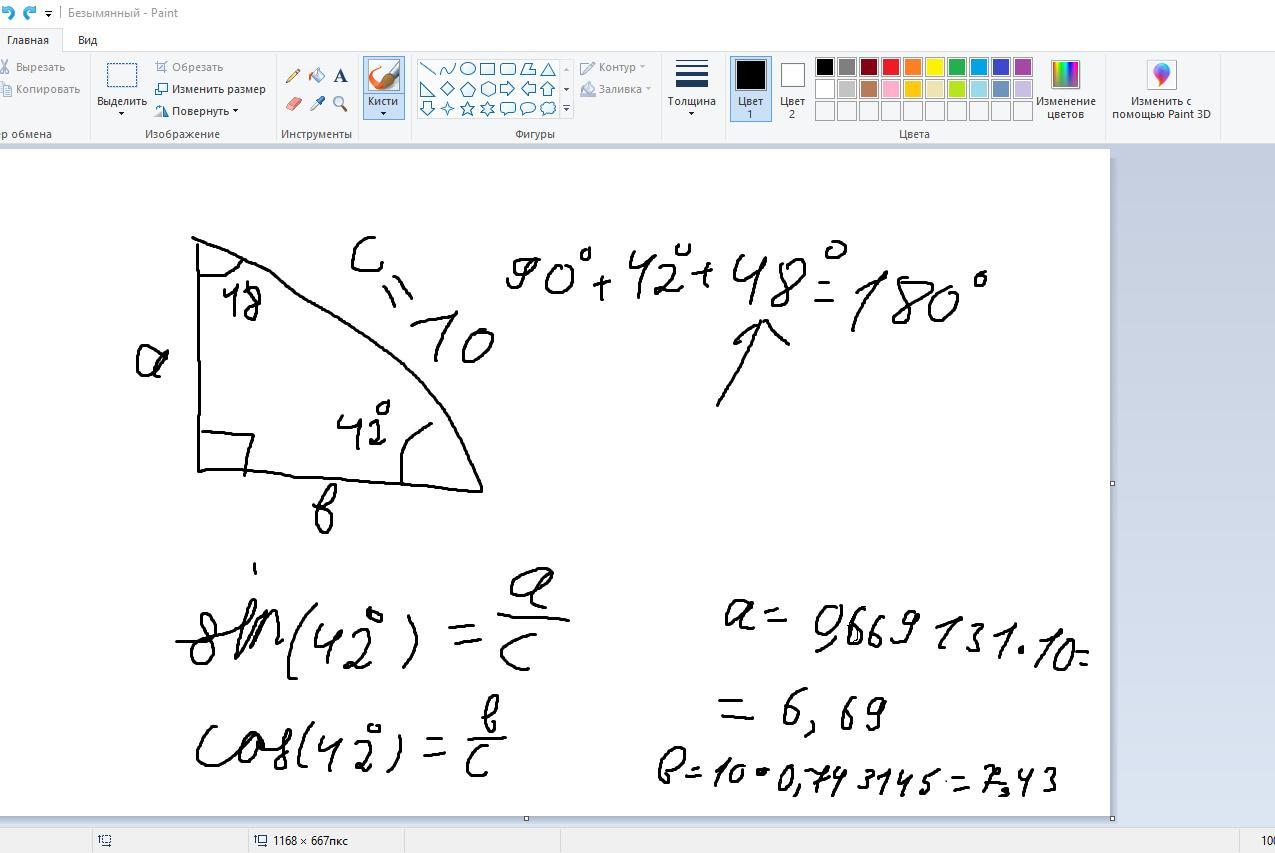 Безымянный - Paint
Главная Вид
Вырезать
Копировать
ер обмена
Выделить
Обрезать
Изменить размер
Повернуть
Изображение
A
Инструменты
Кисти
Контур
Заливка
Фигуры
Толщина
Цвет 1
Цвет 2
Цвета
Изменение цветов
Изменить с помощью Paint 3D
48
C = 10
90° + 42° + 48° = 180°
a
42°
b
sin(42°) = a/c
cos(42°) = b/c
a = 0,669 131 · 10 =
= 6,69
b = 10 · 0,743145 = 7,43
1168 × 667пкс
100